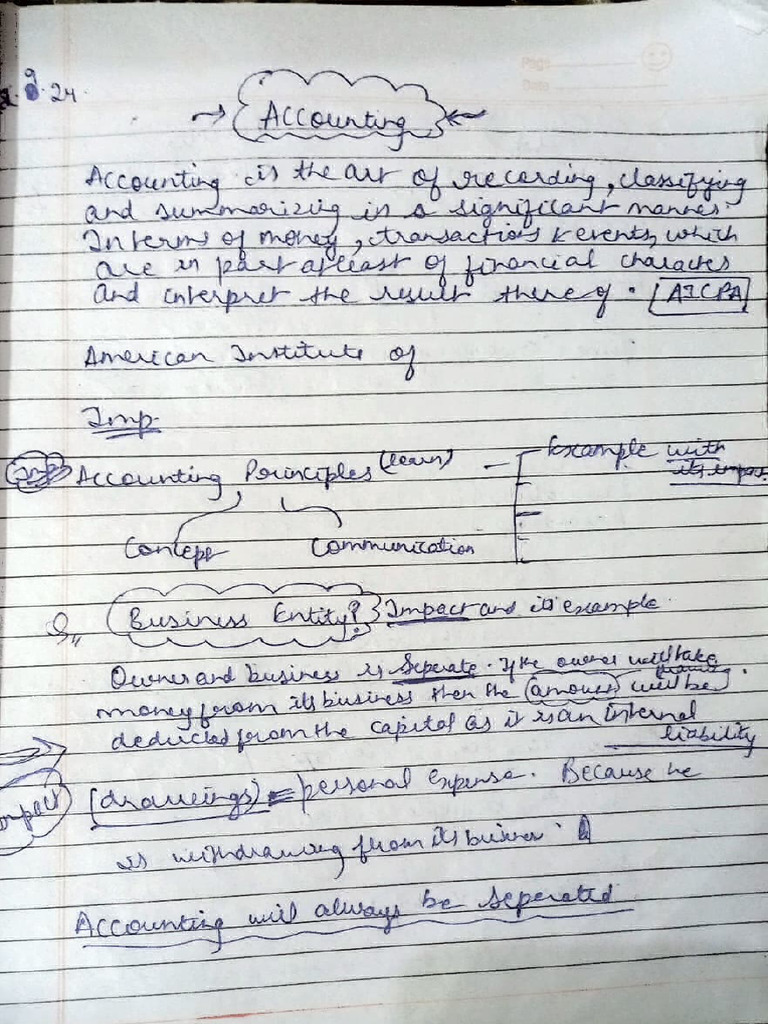 9.24
Page
Date
→ Accounting ←
Accounting is the art of recording, classifying
and summarizing in a significant manner
In terms of money, transactions & events, which
are in part atleast of financial character
and interpret the result there of. [AICPA]
American Institute of
Imp.
Imp Accounting Principles (learn) - Example with
its impact
Concept Communication
Q,, Business Entity? Impact and its example
Owner and business is Seperate. If the owner will take
money from its business then the amount will be
deducted from the capital as it is an internal
liability
(drawings) = personal expense. Because he
is withdrawing from its business
Accounting will always be seperated